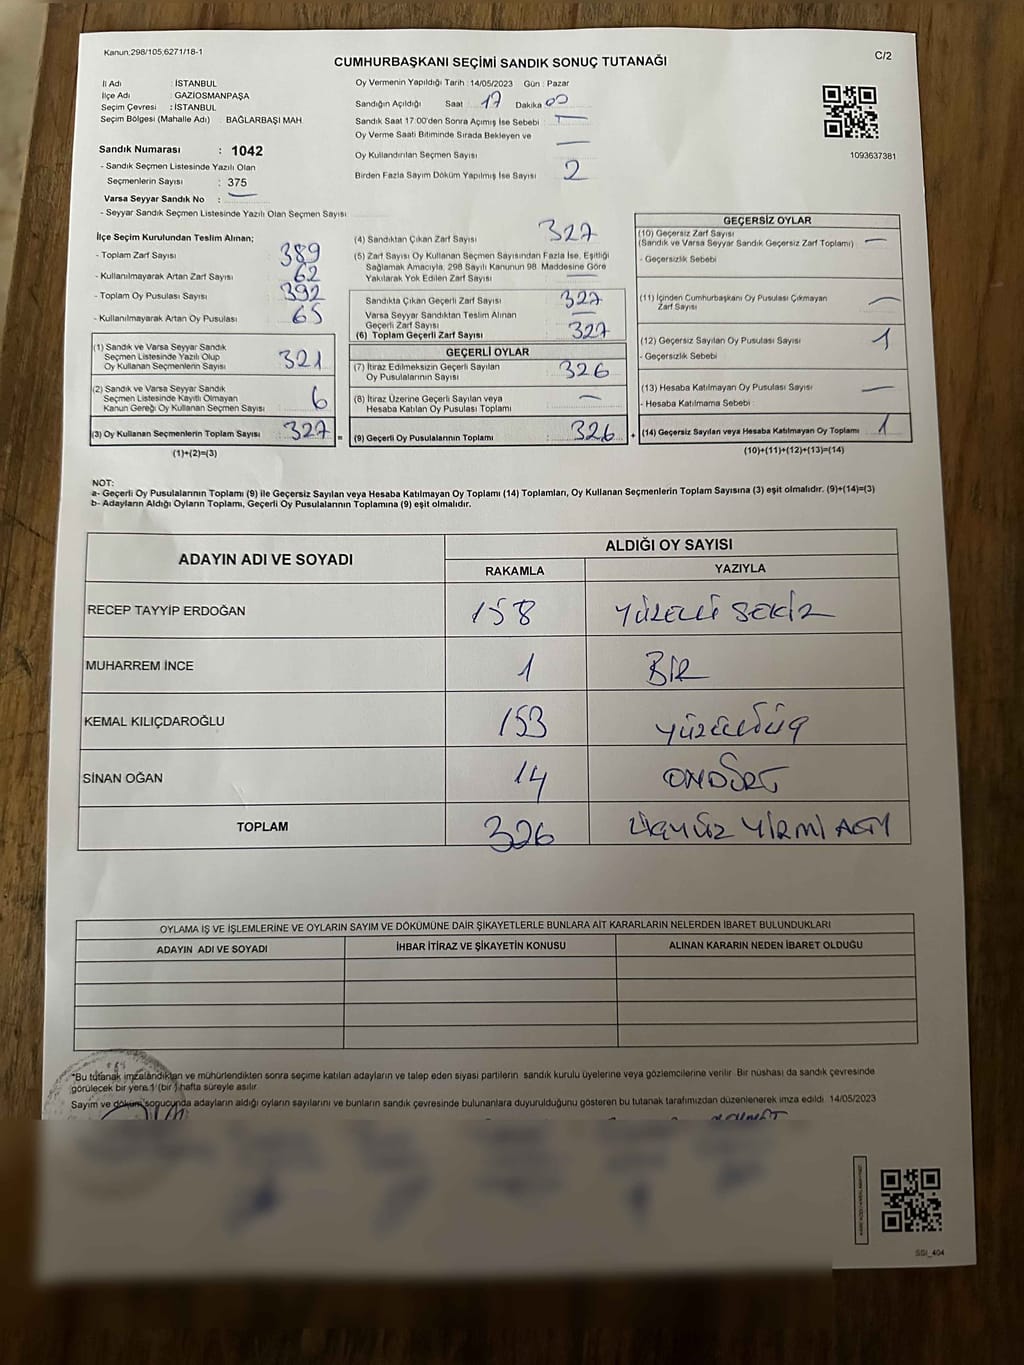 Kanun,298/105,6271/18-1
CUMHURBAŞKANI SEÇİMİ SANDIK SONUÇ TUTANAĞI
C/2
İl Adı : İSTANBUL
İlçe Adı : GAZİOSMANPAŞA
Seçim Çevresi : İSTANBUL
Seçim Bölgesi (Mahalle Adı) : BAĞLARBAŞI MAH.
Sandık Numarası : 1042
- Sandık Seçmen Listesinde Yazılı Olan
Seçmenlerin Sayısı : 375
Varsa Seyyar Sandık No : —
- Seyyar Sandık Seçmen Listesinde Yazılı Olan Seçmen Sayısı
Oy Vermenin Yapıldığı Tarih : 14/05/2023 Gün : Pazar
Sandığın Açıldığı Saat 17 Dakika 00
Sandık Saat 17:00'den Sonra Açımış İse Sebebi : —
Oy Verme Saati Bitiminde Sırada Bekleyen ve
Oy Kullandırılan Seçmen Sayısı —
Birden Fazla Sayım Döküm Yapılmış İse Sayısı 2
1093637381
İlçe Seçim Kurulundan Teslim Alınan;
- Toplam Zarf Sayısı 389
- Kullanılmayarak Artan Zarf Sayısı 62
- Toplam Oy Pusulası Sayısı 392
- Kullanılmayarak Artan Oy Pusulası 65
(1) Sandık ve Varsa Seyyar Sandık
Seçmen Listesinde Yazılı Olup
Oy Kullanan Seçmenlerin Sayısı 321
(2) Sandık ve Varsa Seyyar Sandık
Seçmen Listesinde Kayıtlı Olmayan
Kanun Gereği Oy Kullanan Seçmen Sayısı 6
(3) Oy Kullanan Seçmenlerin Toplam Sayısı 327 =
(1)+(2)=(3)
(4) Sandıktan Çıkan Zarf Sayısı 327
(5) Zarf Sayısı Oy Kullanan Seçmen Sayısından Fazla İse, Eşitliği
Sağlamak Amacıyla, 298 Sayılı Kanunun 98. Maddesine Göre
Yakılarak Yok Edilen Zarf Sayısı —
Sandıkta Çıkan Geçerli Zarf Sayısı 327
Varsa Seyyar Sandıktan Teslim Alınan
Geçerli Zarf Sayısı —
(6) Toplam Geçerli Zarf Sayısı 327
GEÇERLİ OYLAR
(7) İtiraz Edilmeksizin Geçerli Sayılan
Oy Pusulalarının Sayısı 326
(8) İtiraz Üzerine Geçerli Sayılan veya
Hesaba Katılan Oy Pusulası Toplamı —
(9) Geçerli Oy Pusulalarının Toplamı 326 +
GEÇERSİZ OYLAR
(10) Geçersiz Zarf Sayısı
(Sandık ve Varsa Seyyar Sandık Geçersiz Zarf Toplamı) —
- Geçersizlik Sebebi
(11) İçinden Cumhurbaşkanı Oy Pusulası Çıkmayan
Zarf Sayısı —
(12) Geçersiz Sayılan Oy Pusulası Sayısı 1
- Geçersizlik Sebebi
(13) Hesaba Katılmayan Oy Pusulası Sayısı —
- Hesaba Katılmama Sebebi :
(14) Geçersiz Sayılan veya Hesaba Katılmayan Oy Toplamı 1
(10)+(11)+(12)+(13)=(14)
NOT:
a- Geçerli Oy Pusulalarının Toplamı (9) ile Geçersiz Sayılan veya Hesaba Katılmayan Oy Toplamı (14) Toplamları, Oy Kullanan Seçmenlerin Toplam Sayısına (3) eşit olmalıdır. (9)+(14)=(3)
b- Adayların Aldığı Oyların Toplamı, Geçerli Oy Pusulalarının Toplamına (9) eşit olmalıdır.
ADAYIN ADI VE SOYADI
ALDIĞI OY SAYISI
RAKAMLA YAZIYLA
RECEP TAYYİP ERDOĞAN 158 YÜZELLİ SEKİZ
MUHARREM İNCE 1 BİR
KEMAL KILIÇDAROĞLU 153 YÜZELLİÜÇ
SİNAN OĞAN 14 ONDÖRT
TOPLAM 326 ÜÇYÜZ YİRMİ ALTI
OYLAMA İŞ VE İŞLEMLERİNE VE OYLARIN SAYIM VE DÖKÜMÜNE DAİR ŞİKAYETLERLE BUNLARA AİT KARARLARIN NELERDEN İBARET BULUNDUKLARI
ADAYIN ADI VE SOYADI İHBAR İTİRAZ VE ŞİKAYETİN KONUSU ALINAN KARARIN NEDEN İBARET OLDUĞU
*Bu tutanak imzalandıktan ve mühürlendikten sonra seçime katılan adayların ve talep eden siyasi partilerin sandık kurulu üyelerine veya gözlemcilerine verilir. Bir nüshası da sandık çevresinde
görülecek bir yere 1 (bir ) hafta süreyle asılır.
Sayım ve döküm sonucunda adayların aldığı oyların sayılarını ve bunların sandık çevresinde bulunanlara duyurulduğunu gösteren bu tutanak tarafımızdan düzenlenerek imza edildi. 14/05/2023
SSI_404